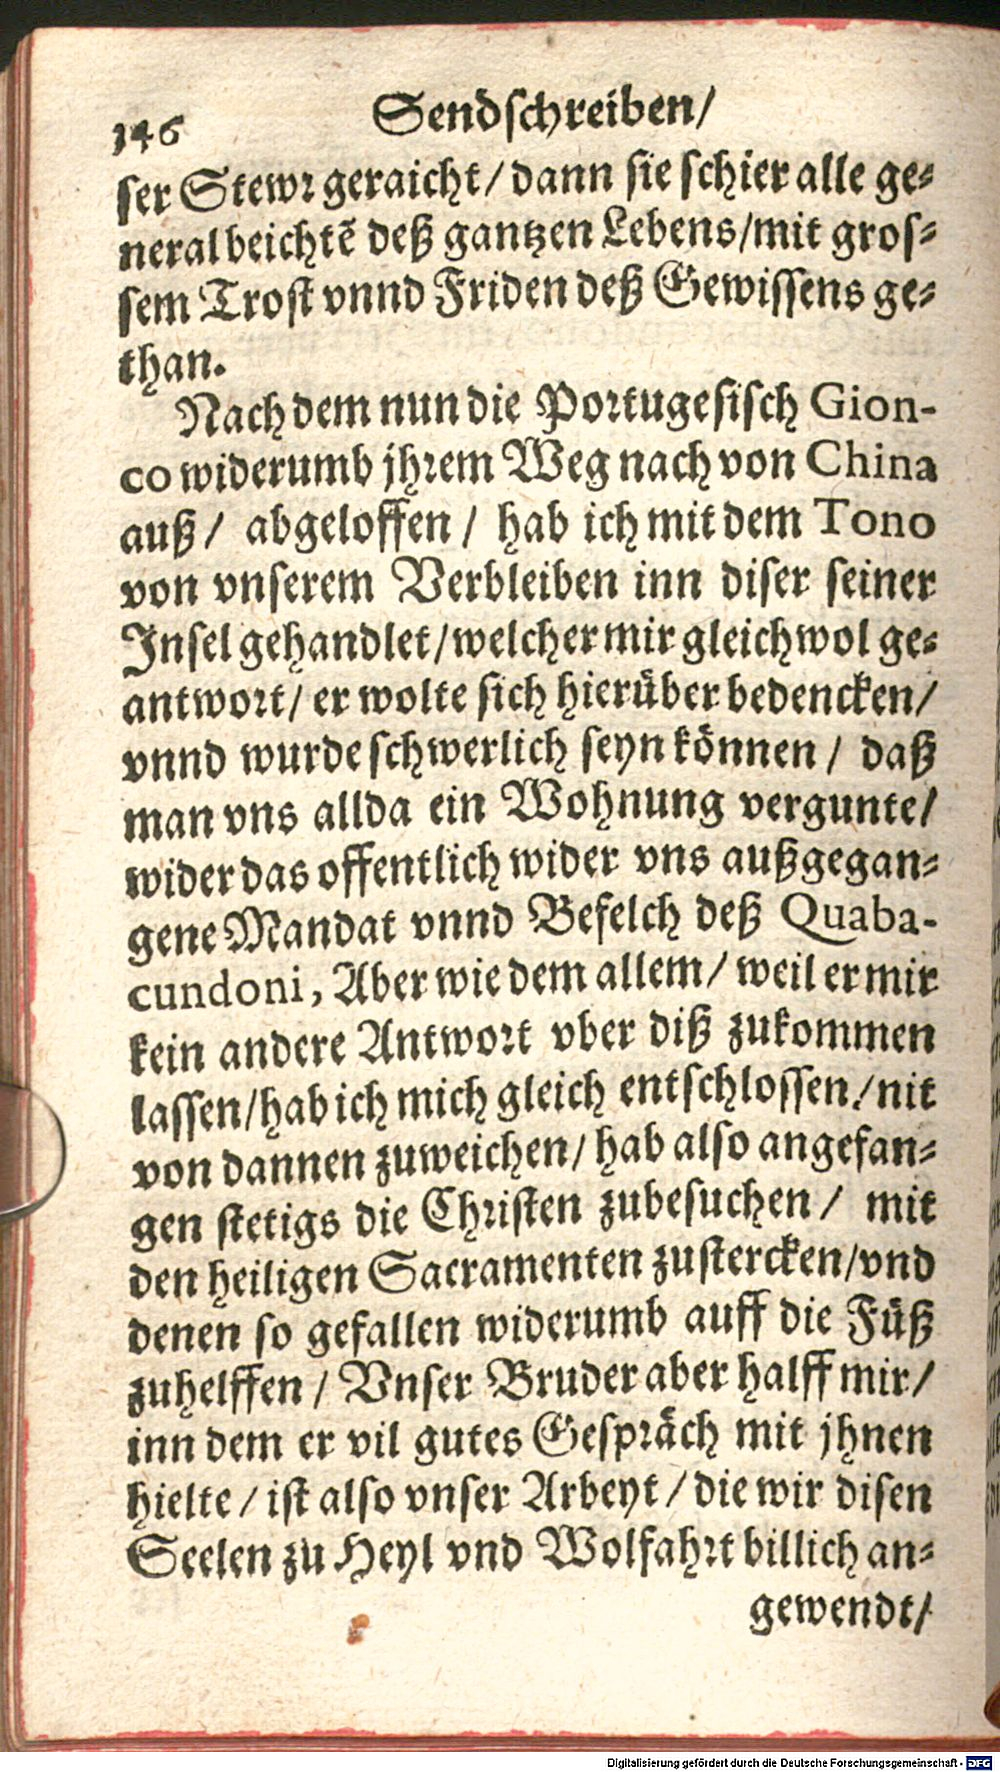 146
Sendschreiben/
ser Stewr geraicht/ dann sie schier alle ge-
neral beichtẽ deß gantzen Lebens/mit gros-
sem Trost vnnd Friden deß Gewissens ge-
than.
Nach dem nun die Portugesisch Gion-
co widerumb jhrem Weg nach von China
auß/ abgeloffen / hab ich mit dem Tono
von vnserem Verbleiben inn diser seiner
Insel gehandlet/welcher mir gleichwol ge-
antwort/ er wolte sich hierüber bedencken/
vnnd wurde schwerlich seyn können / daß
man vns allda ein Wohnung vergunte/
wider das offentlich wider vns außgegan-
gene Mandat vnnd Befelch deß Quaba-
cundoni, Aber wie dem allem/ weil er mir
kein andere Antwort vber diß zukommen
lassen/hab ich mich gleich entschlossen/nit
von dannen zuweichen/ hab also angefan-
gen stetigs die Christen zubesuchen / mit
den heiligen Sacramenten zustercken/vnd
denen so gefallen widerumb auff die Füß
zuhelffen / Vnser Bruder aber halff mir/
inn dem er vil gutes Gespräch mit jhnen
hielte / ist also vnser Arbeyt / die wir disen
Seelen zu Heyl vnd Wolfahrt billich an-
gewendt/
Digitalisierung gefördert durch die Deutsche Forschungsgemeinschaft - DFG